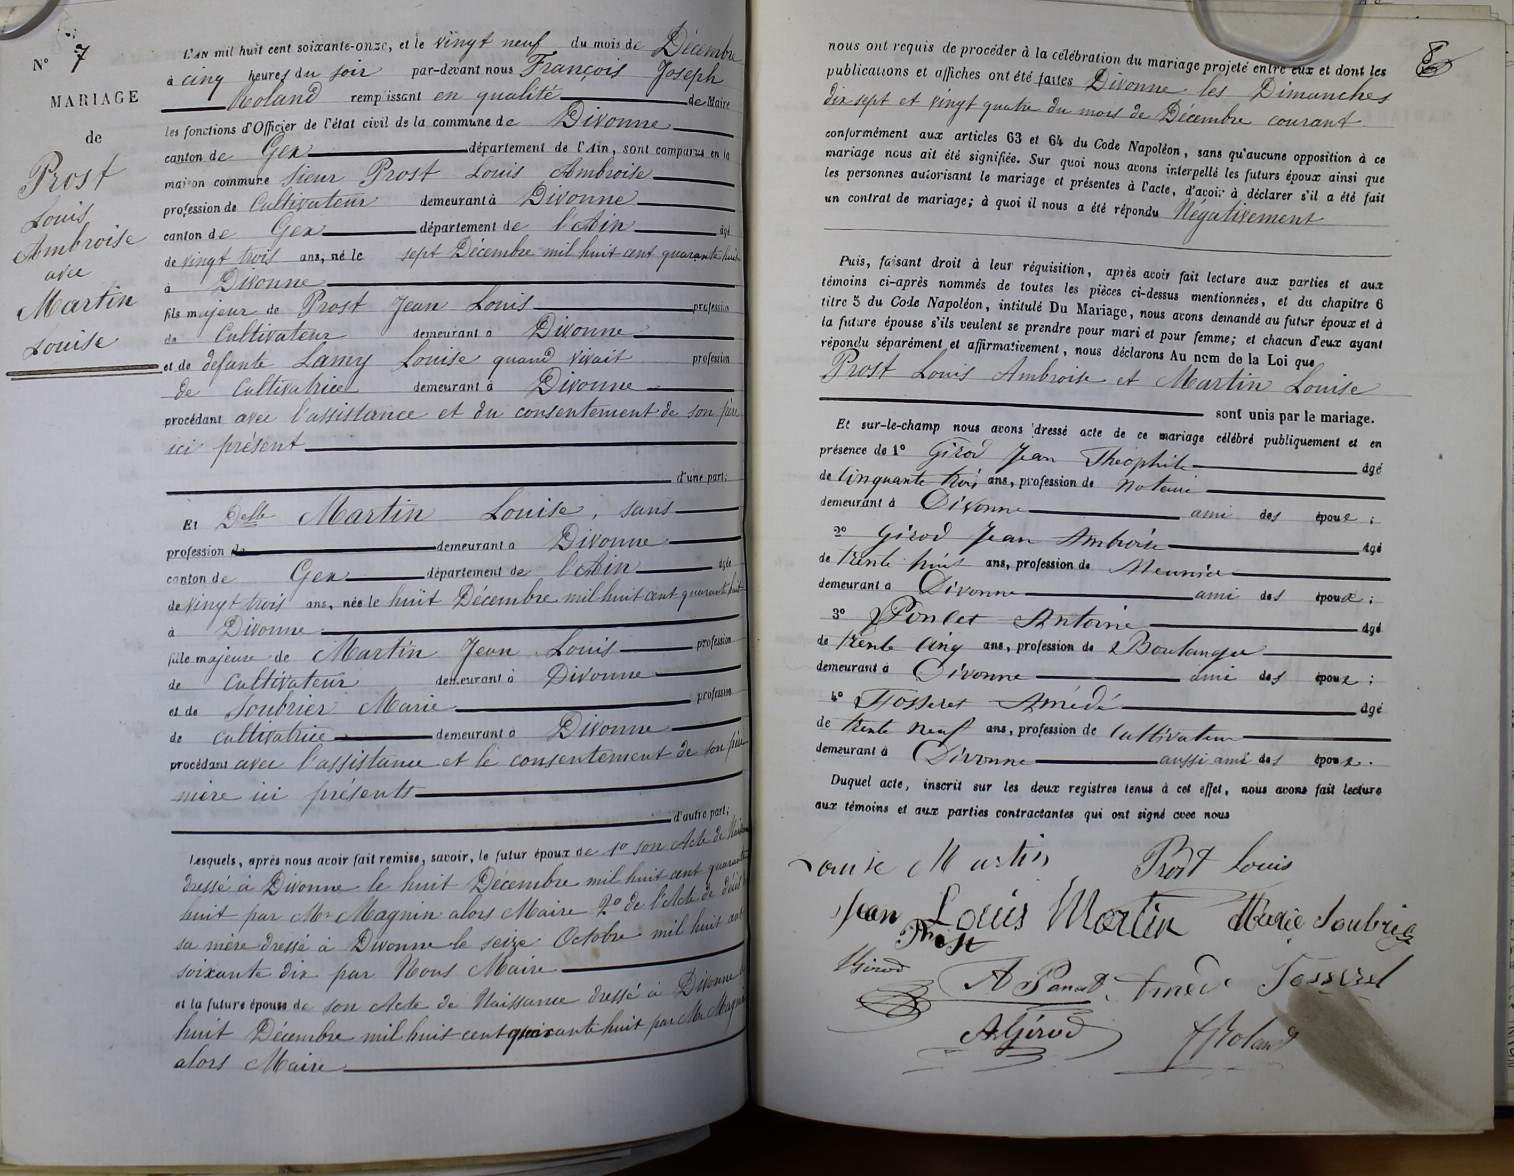 N° 7
MARIAGE
de
Prost
Louis
Ambroise
avec
Martin
Louise
L'AN mil huit cent soixante-onze, et le vingt neuf du mois de Décembre
à cinq heures du soir par-devant nous François Joseph
Roland remplissant en qualité de Maire
les fonctions d'Officier de l'état civil de la commune de Divonne
canton de Gex département de l'Ain, sont comparus en la
maison commune Sieur Prost Louis Ambroise
profession de Cultivateur demeurant à Divonne
canton de Gex département de l'Ain âgé
de vingt trois ans, né le sept Décembre mil huit cent quarante huit
à Divonne
fils majeur de Prost Jean Louis profession
de Cultivateur demeurant à Divonne
et de défunte Lamy Louise quand vivait profession
de Cultivatrice demeurant à Divonne
procédant avec l'assistance et du consentement de son père
ici présent
d'une part;
Et Delle Martin Louise, sans
profession de demeurant à Divonne
canton de Gex département de l'Ain âgée
de vingt trois ans, née le huit Décembre mil huit cent quarante huit
à Divonne
fille majeure de Martin Jean Louis profession
de Cultivateur demeurant à Divonne
et de Soubrier Marie profession
de cultivatrice demeurant à Divonne
procédant avec l'assistance et le consentement de son père
mère ici présents
d'autre part;
Lesquels, après nous avoir fait remise, savoir, le futur époux de 1° son Acte de Naissance
dressé à Divonne le huit Décembre mil huit cent quarante
huit par Mr Magnin alors Maire 2° de l'Acte de décès de
sa mère dressé à Divonne le seize Octobre mil huit cent
soixante dix par Nous Maire
et la future épouse de son Acte de Naissance dressé à Divonne le
huit Décembre mil huit cent quarante huit par Mr Magnin
alors Maire
8
nous ont requis de procéder à la célébration du mariage projeté entre eux et dont les
publications et affiches ont été faites Divonne les Dimanches
dix sept et vingt quatre du mois de Décembre courant
conformément aux articles 63 et 64 du Code Napoléon, sans qu'aucune opposition à ce
mariage nous ait été signifiée. Sur quoi nous avons interpellé les futurs époux ainsi que
les personnes autorisant le mariage et présentes à l'acte, d'avoir à déclarer s'il a été fait
un contrat de mariage; à quoi il nous a été répondu Négativement
Puis, faisant droit à leur réquisition, après avoir fait lecture aux parties et aux
témoins ci-après nommés de toutes les pièces ci-dessus mentionnées, et du chapitre 6
titre 5 du Code Napoléon, intitulé Du Mariage, nous avons demandé au futur époux et à
la future épouse s'ils veulent se prendre pour mari et pour femme; et chacun d'eux ayant
répondu séparément et affirmativement, nous déclarons Au nom de la Loi que
Prost Louis Ambroise et Martin Louise
sont unis par le mariage.
Et sur-le-champ nous avons dressé acte de ce mariage célébré publiquement et en
présence de 1° Girod Jean Théophile âgé
de Cinquante trois ans, profession de notaire
demeurant à Divonne ami des époux;
2° Girod Jean Ambroise âgé
de trente huit ans, profession de Meunier
demeurant à Divonne ami des époux;
3° Poncet Antoine âgé
de trente cinq ans, profession de Boulanger
demeurant à Divonne ami des époux;
4° Fosseret Amédé âgé
de trente neuf ans, profession de Cultivateur
demeurant à Divonne aussi ami des époux.
Duquel acte, inscrit sur les deux registres tenus à cet effet, nous avons fait lecture
aux témoins et aux parties contractantes qui ont signé avec nous
Louise Martin Prost Louis
Jean Louis Martin Marie Soubrier
Prost
Girod
A Poncet Amédé Fosseret
A Girod
Roland